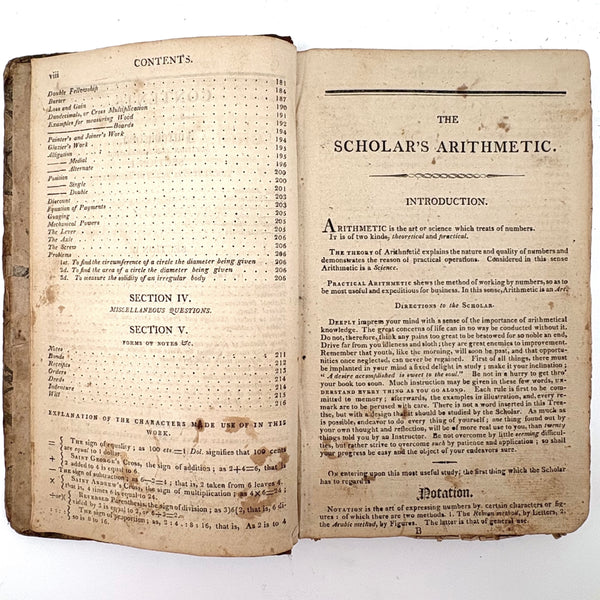 viii
CONTENTS.
Double Fellowship 181
Barter 184
Loss and Gain 187
Duodecimals, or Cross Multiplication 190
Examples for measuring Wood 191
Boards 192
Painter's and Joiner's Work 194
Glazier's Work 195
Alligation 195
Medial 195
Alternate 196
Position
Single 200
Double 200
Discount 201
Equation of Payments 203
Guaging 205
Mechanical Powers 205
The Lever 205
The Axle 206
The Screw 206
Problems 206
1st. To find the circumference of a circle the diameter being given 206
2d. To find the area of a circle the diameter being given 206
3d. To measure the solidity of an irregular body 206
SECTION IV.
MISCELLANEOUS QUESTIONS.
SECTION V.
FORMS OF NOTES &c.
Notes
Bonds 211
Receipts 211
Orders 213
Deeds 213
Indenture 214
Will 216
EXPLANATION OF THE CHARACTERS MADE USE OF IN THIS
WORK.
= { The sign of equality; as 100 cts.=1 Dol. signifies that 100 cents
are equal to 1 dollar.
+ { SAINT GEORGE'S CROSS, the sign of addition; as 2+4=6, that
2 added to 4 is equal to 6.
The sign of subtraction; as 6-2=4; that is, 2 taken from 6 leaves 4.
× { SAINT ANDREW'S CROSS, the sign of multiplication; as 4×6=24;
that is, 4 times 6 is equal to 24.
REVERSED PARENTHESIS, the sign of division; as 3)6(2, that is, 6 di-
vided by 3 is equal to 2, or
The sign of proportion; as, 2:4::8:16, that is, As 2 is to 4
so is 8 to 16.
THE
SCHOLAR'S ARITHMETIC.
INTRODUCTION.
ARITHMETIC is the art or science which treats of numbers.
IT is of two kinds, theoretical and practical.
THE THEORY OF Arithmetic explains the nature and quality of numbers and
demonstrates the reason of practical operations. Considered in this sense
Arithmetic is a Science.
PRACTICAL ARITHMETIC shews the method of working by numbers, so as to
be most useful and expeditious for business. In this sense, Arithmetic is an Art.
DIRECTIONS TO THE SCHOLAR.
DEEPLY impress your mind with a sense of the importance of arithmetical
knowledge. The great concerns of life can in no way be conducted without it.
Do not, therefore, think any pains too great to be bestowed for so noble an end.
Drive far from you idleness and sloth; they are great enemies to improvement.
Remember that youth, like the morning, will soon be past, and that opportu-
nities once neglected, can never be regained. First of all things, there must
be implanted in your mind a fixed delight in study; make it your inclination;
"A desire accomplished is sweet to the soul." Be not in a hurry to get thro'
your book too soon. Much instruction may be given in these few words, UN-
DERSTAND EVERY THING AS YOU GO ALONG. Each rule is first to be com-
mitted to memory; afterwards, the examples in illustration, and every re-
mark are to be perused with care. There is not a word inserted in this Trea-
tise, but with a design that it should be studied by the Scholar. As much as
possible, endeavor to do every thing of yourself; one thing found out by
your own thought and reflection, will be of more real use to you, than twenty
things told you by an Instructor. Be not overcome by little seeming difficul-
ties, but rather strive to overcome such by patience and application; so shall
your progress be easy and the object of your endeavors sure.
On entering upon this most useful study, the first thing which the Scholar
has to regard is
Notation.
NOTATION is the art of expressing numbers by certain characters or fig-
ures: of which there are two methods. 1. The Roman method, by Letters, 2,
the Arabic method, by Figures. The latter is that of general use.
B